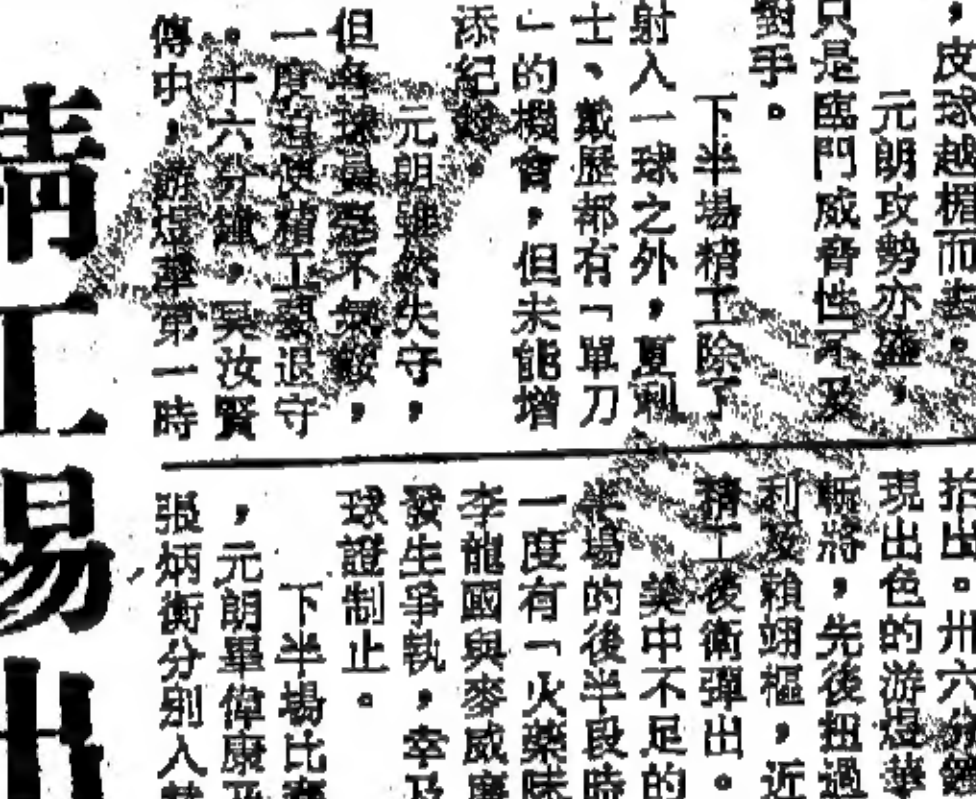 ，皮球越楣而出。
元朗攻勢亦雄，
只是臨門威脅性不及
對手。
下半場精工除了
射入一球之外，夏利
士、戴歷都有「單刀
」的機會，但未能增
添紀錄
元朗雖然失守，
但各球員毫不氣餒，
一度迫使精工要退守
。十六分鐘，吳汝賢
傳中，游煜華第一時
拍出。卅六分鐘
現出色的游煜華
斬將，先後扭過
利及賴翊樞，近
精工後衛彈出。
美中不足的
半場的後半段時
一度有「火藥味
李龍國與麥威廉
發生爭執，幸及
球證制止。
下半場比賽
，元朗畢偉康及
張炳衡分別入替
精工易出